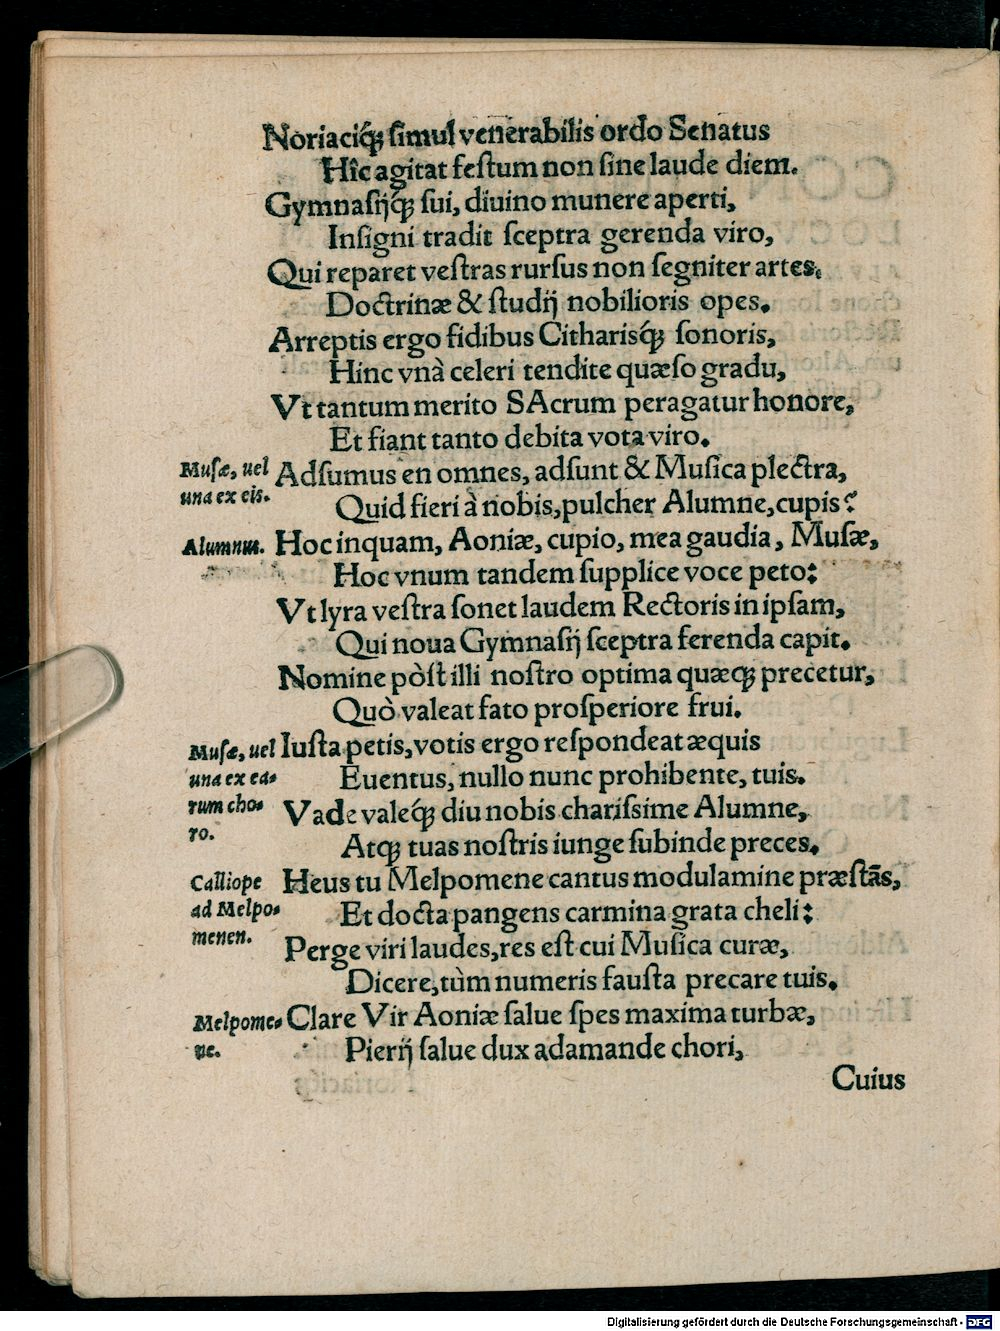 Noriaciq́ꝫ simul venerabilis ordo Senatus
Hîc agitat festum non sine laude diem.
Gymnasijq́ꝫ sui, diuino munere aperti,
Insigni tradit sceptra gerenda viro,
Qui reparet vestras rursus non segniter artes,
Doctrinæ & studij nobilioris opes.
Arreptis ergo fidibus Citharisq́ꝫ sonoris,
Hinc vnà celeri tendite quæso gradu,
Vt tantum merito SAcrum peragatur honore,
Et fiant tanto debita vota viro.
Musæ, uel
una ex eis.
Adsumus en omnes, adsunt & Musica plectra,
Quid fieri à nobis, pulcher Alumne, cupis?
Alumnus.
Hoc inquam, Aoniæ, cupio, mea gaudia, Musæ,
Hoc vnum tandem supplice voce peto:
Vt lyra vestra sonet laudem Rectoris in ipsam,
Qui noua Gymnasij sceptra ferenda capit.
Nomine pòst illi nostro optima quæqꝫ precetur,
Quò valeat fato prosperiore frui.
Musæ, uel
una ex ea-
rum cho-
ro.
Iusta petis, votis ergo respondeat æquis
Euentus, nullo nunc prohibente, tuis.
Vade valeq́ꝫ diu nobis charissime Alumne,
Atqꝫ tuas nostris iunge subinde preces.
Calliope
ad Melpo-
menen.
Heus tu Melpomene cantus modulamine præstãs,
Et docta pangens carmina grata cheli:
Perge viri laudes, res est cui Musica curæ,
Dicere, tùm numeris fausta precare tuis.
Melpome-
ne.
Clare Vir Aoniæ salue spes maxima turbæ,
Pierij salue dux adamande chori,
Cuius
Digitalisierung gefördert durch die Deutsche Forschungsgemeinschaft - DFG